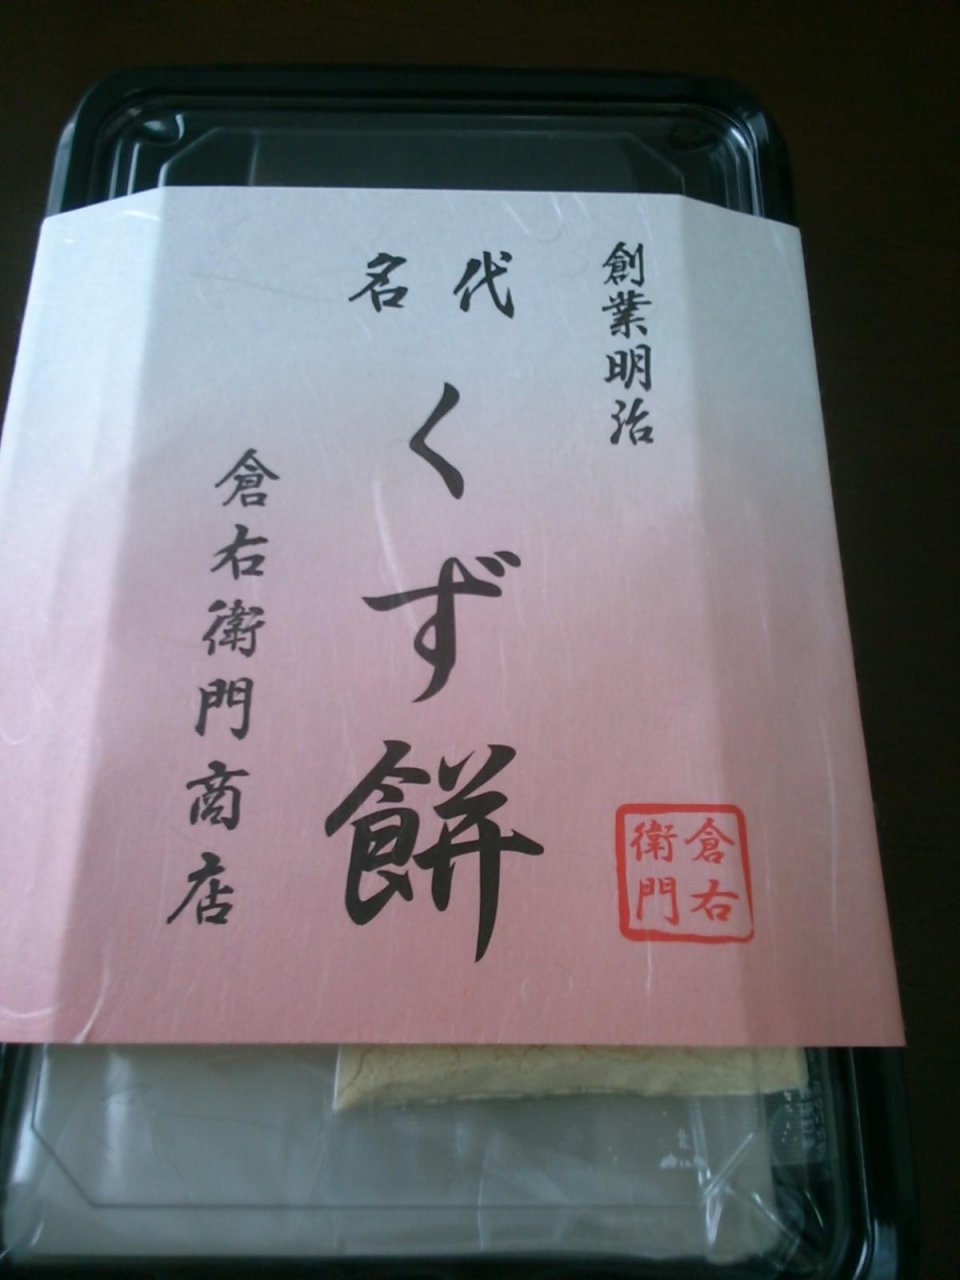 創業明治
名代
くず餅
倉右衛門商店
倉右
衛門